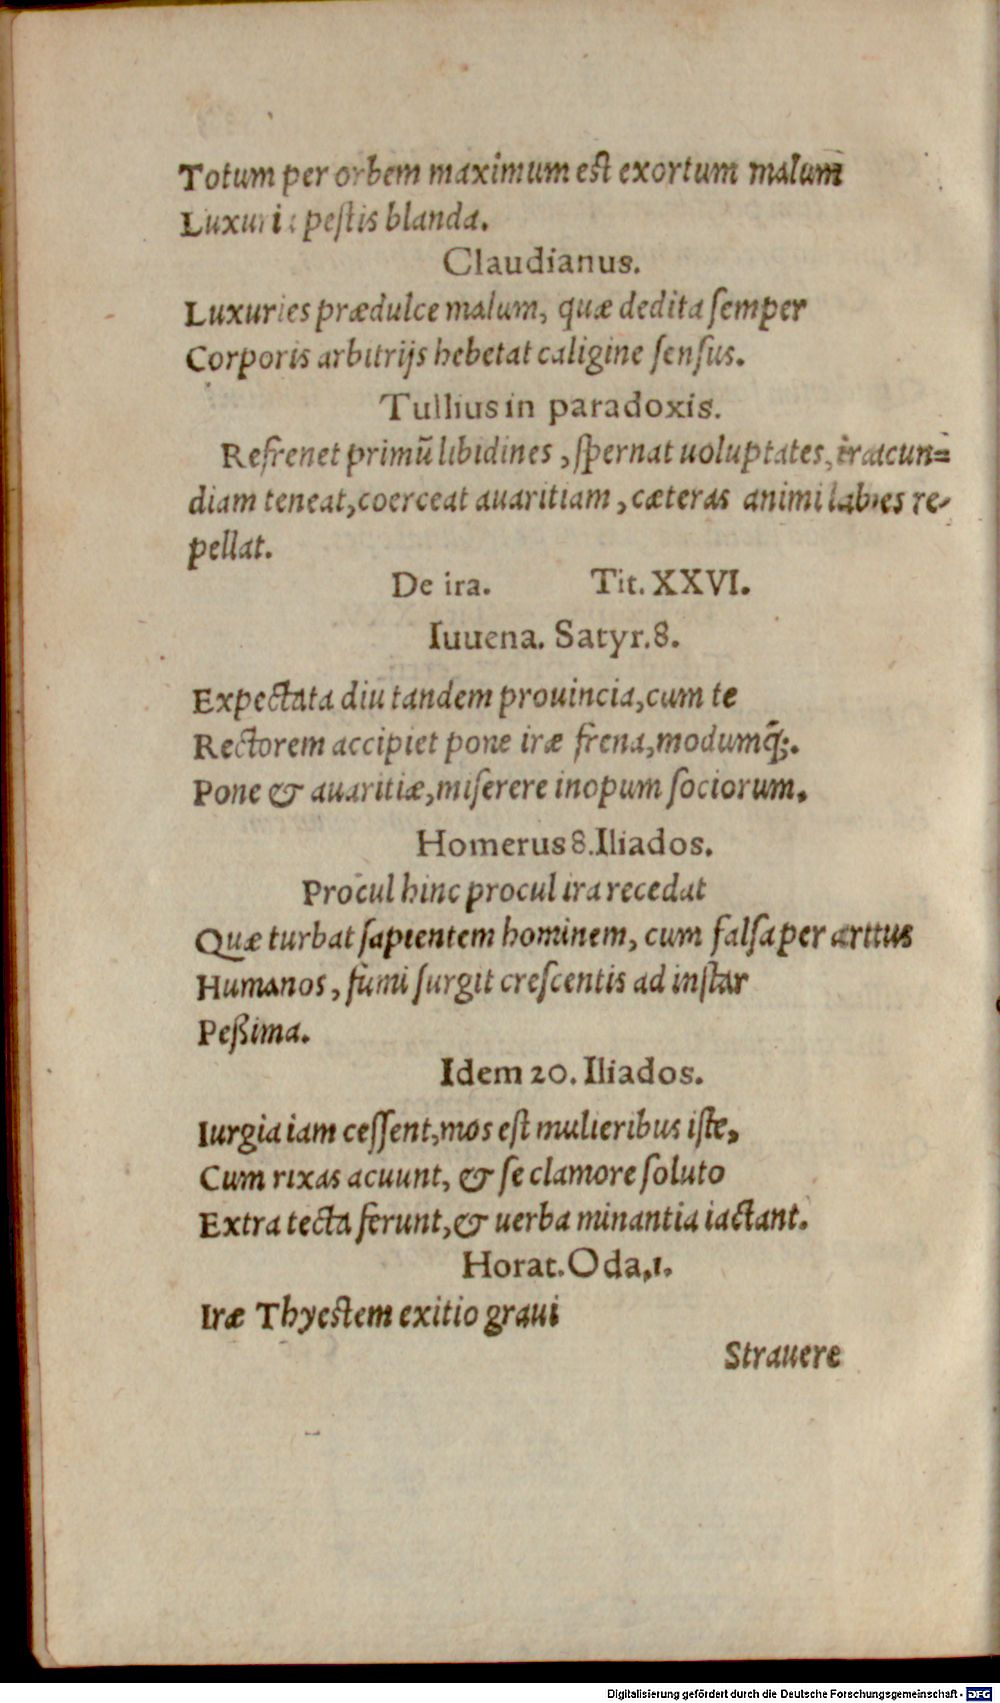 Totum per orbem maximum est exortum malum
Luxuriæ pestis blanda.
Claudianus.
Luxuries prædulce malum, quæ dedita semper
Corporis arbitrijs hebetat caligine sensus.
Tullius in paradoxis.
Refrenet primũ libidines, spernat uoluptates, iracun=
diam teneat, coerceat auaritiam, cæteras animi labes re-
pellat.
De ira. Tit. XXVI.
Iuuena. Satyr. 8.
Expectata diu tandem prouincia, cum te
Rectorem accipiet pone iræ frena, modumq́;.
Pone & auaritiæ, miserere inopum sociorum.
Homerus 8. Iliados.
Procul hinc procul ira recedat
Quæ turbat sapientem hominem, cum falsa per artus
Humanos, fumi surgit crescentis ad instar
Peßima.
Idem 20. Iliados.
Iurgia iam cessent, mos est mulieribus iste,
Cum rixas acuunt, & se clamore soluto
Extra tecta ferunt, & uerba minantia iactant.
Horat. Oda, 1.
Iræ Thyestem exitio graui
Strauere
Digitalisierung gefördert durch die Deutsche Forschungsgemeinschaft - DFG